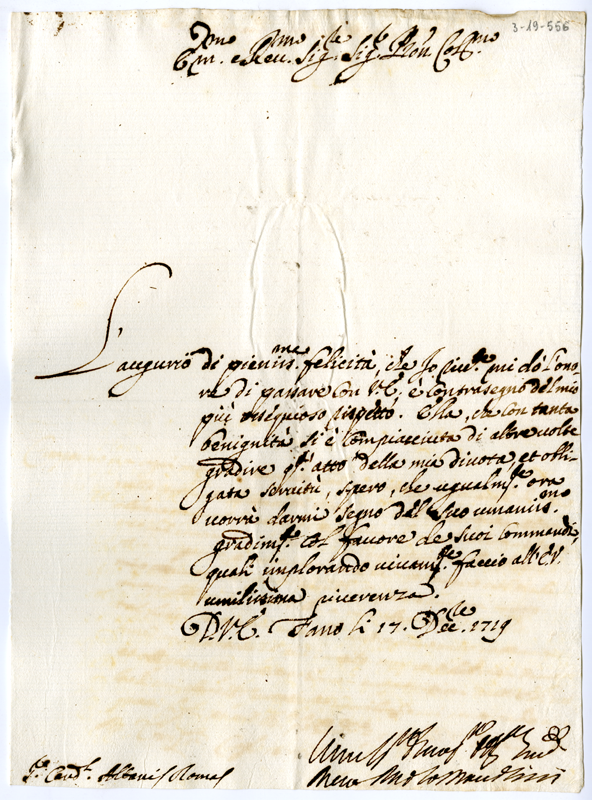 3-19-556
Em.mo e Rev.mo Sig.re Sig.re P.ron Col.mo
L'augurio di pieniss.me felicità, che Io pure mi dò l'ono-
re di passare con V.E. è contrasegno del mio
più ossequioso rispetto. Ella, che con tanta
benignità si è compiacciuta di altre volte
gradire q.to atto della mia divota, et obli-
gata servitù, spero, che ugualm.te ora
vorrà darmi segno del suo umaniss.mo
gradim.to col favore de suoi commandi,
quali implorando vivam.te faccio all'E.V.
umilissima riverenza.
D.V.E. Fano li 17. Dec.bre 1719
S.r Card.l Albani Roma